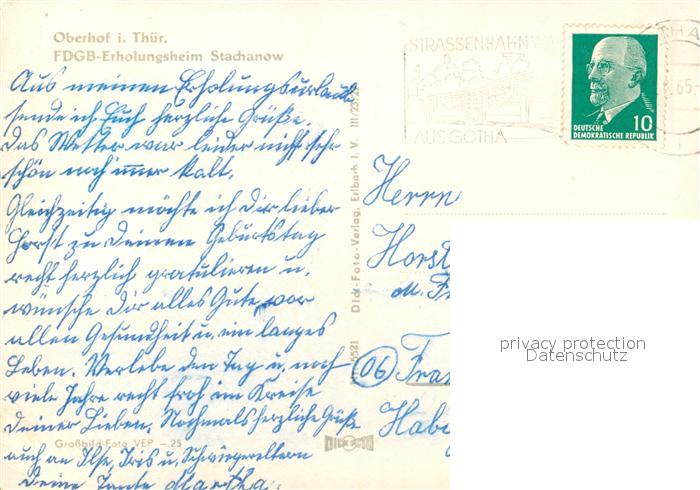 Oberhof i. Thür.
FDGB-Erholungsheim Stachanow
Aus meinen Erholungsurlaub
sende ich Euch herzliche Grüße.
Das Wetter war leider nicht sehr
schön noch immer kalt.
Gleichzeitig möchte ich Dir lieber
Horst zu Deinem Geburtstag
recht herzlich gratulieren u.
wünsche Dir alles Gute vor
allen Gesundheit u. ein langes
Leben. Verlebe den Tag u. noch
viele Jahre recht froh im Kreise
Deiner Lieben. Nochmals herzliche Grüße
Großbild-Foto VEP -.25
auch an Ilse, Iris u. Schwiegereltern
Deine Tante Martha.
Dick-Foto-Verlag, Erlbach i. V.
STRASSENBAHNWA
AUS GOTHA
DEUTSCHE
DEMOKRATISCHE REPUBLIK
10
65
Herrn
Horst
(06)
Hab
privacy protection
Datenschutz